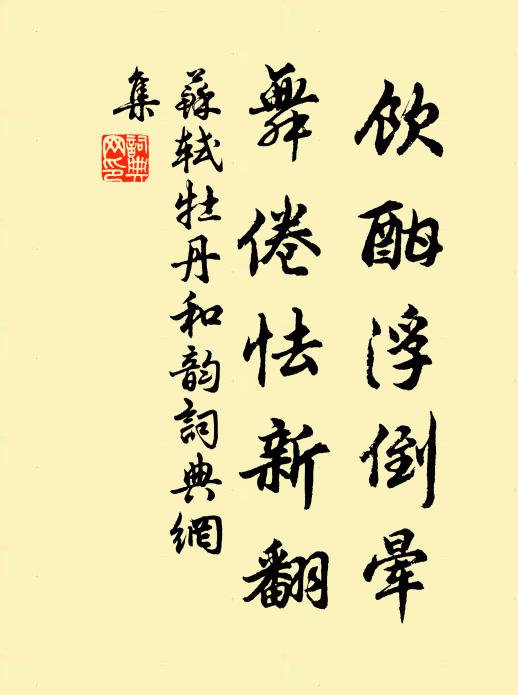 飲酣浮倒暈
舞倦怯新翻
蘇軾牡丹和韵詞典網
集
詞典網印